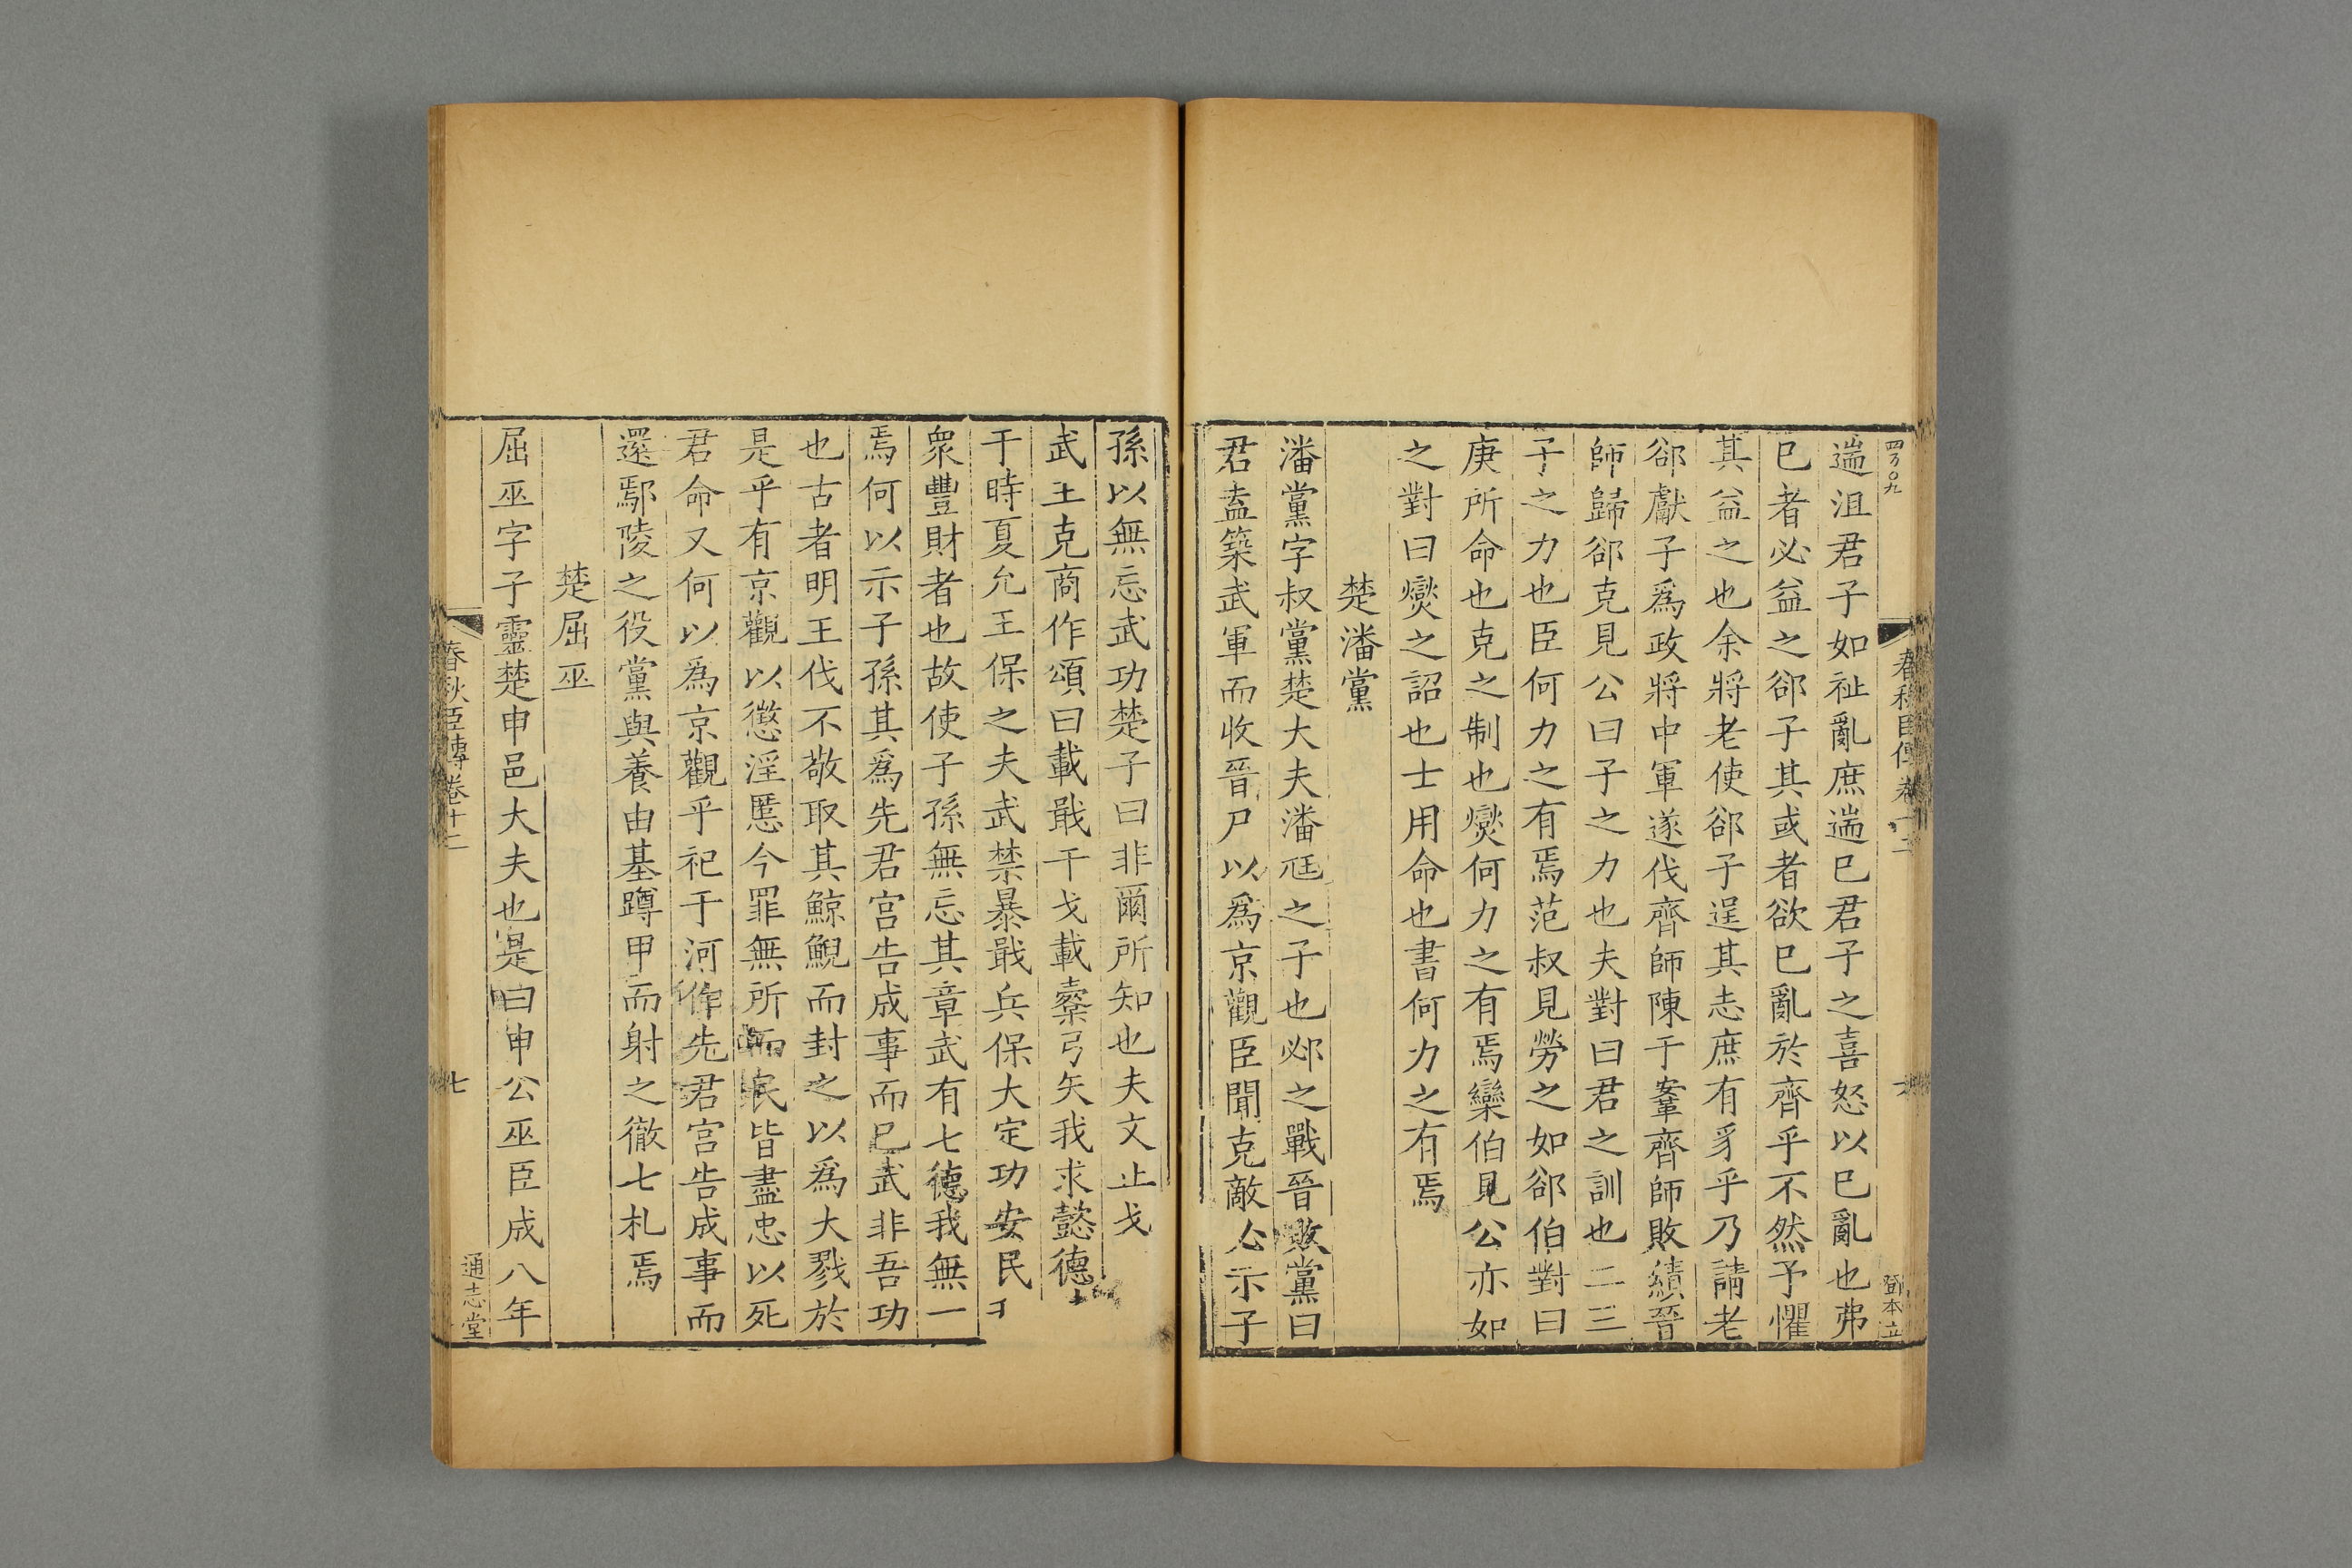 四百〇九
春秋臣傳卷十二
六
鄧本立
遄沮君子如祉亂庶遄巳君子之喜怒以巳亂也弗
巳者必益之郤子其或者欲巳亂於齊乎不然予懼
其益之也余將老使郤子逞其志庶有豸乎乃請老
郤獻子爲政將中軍遂伐齊師陳于鞌齊師敗績晉
師歸郤克見公曰子之力也夫對曰君之訓也二三
子之力也臣何力之有焉范叔見勞之如郤伯對曰
庚所命也克之制也爕何力之有焉欒伯見公亦如
之對曰爕之詔也士用命也書何力之有焉
楚潘黨
潘黨字叔黨楚大夫潘尪之子也邲之戰晉敗黨曰
君盍築武軍而收晉尸以爲京觀臣聞克敵必示子
孫以無忘武功楚子曰非爾所知也夫文止戈
武王克商作頌曰載戢干戈載櫜弓矢我求懿德
于時夏允王保之夫武禁暴戢兵保大定功安民
衆豐財者也故使子孫無忘其章武有七德我無一
焉何以示子孫其爲先君宮告成事而巳武非吾功
也古者明王伐不敬取其鯨鯢而封之以爲大戮於
是乎有京觀以懲淫慝今罪無所而民皆盡忠以死
君命又何以爲京觀乎祀于河作先君宮告成事而
還鄢陵之役黨與養由基蹲甲而射之徹七札焉
楚屈巫
屈巫字子靈楚申邑大夫也是曰申公巫臣成八年
春秋臣傳卷十二
七
通志堂